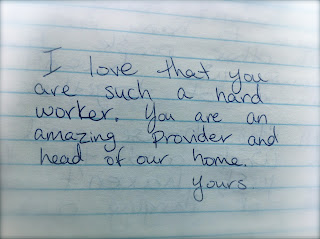 I love that you
are such a hard
worker. You are an
amazing Provider and
head of our home.
Yours